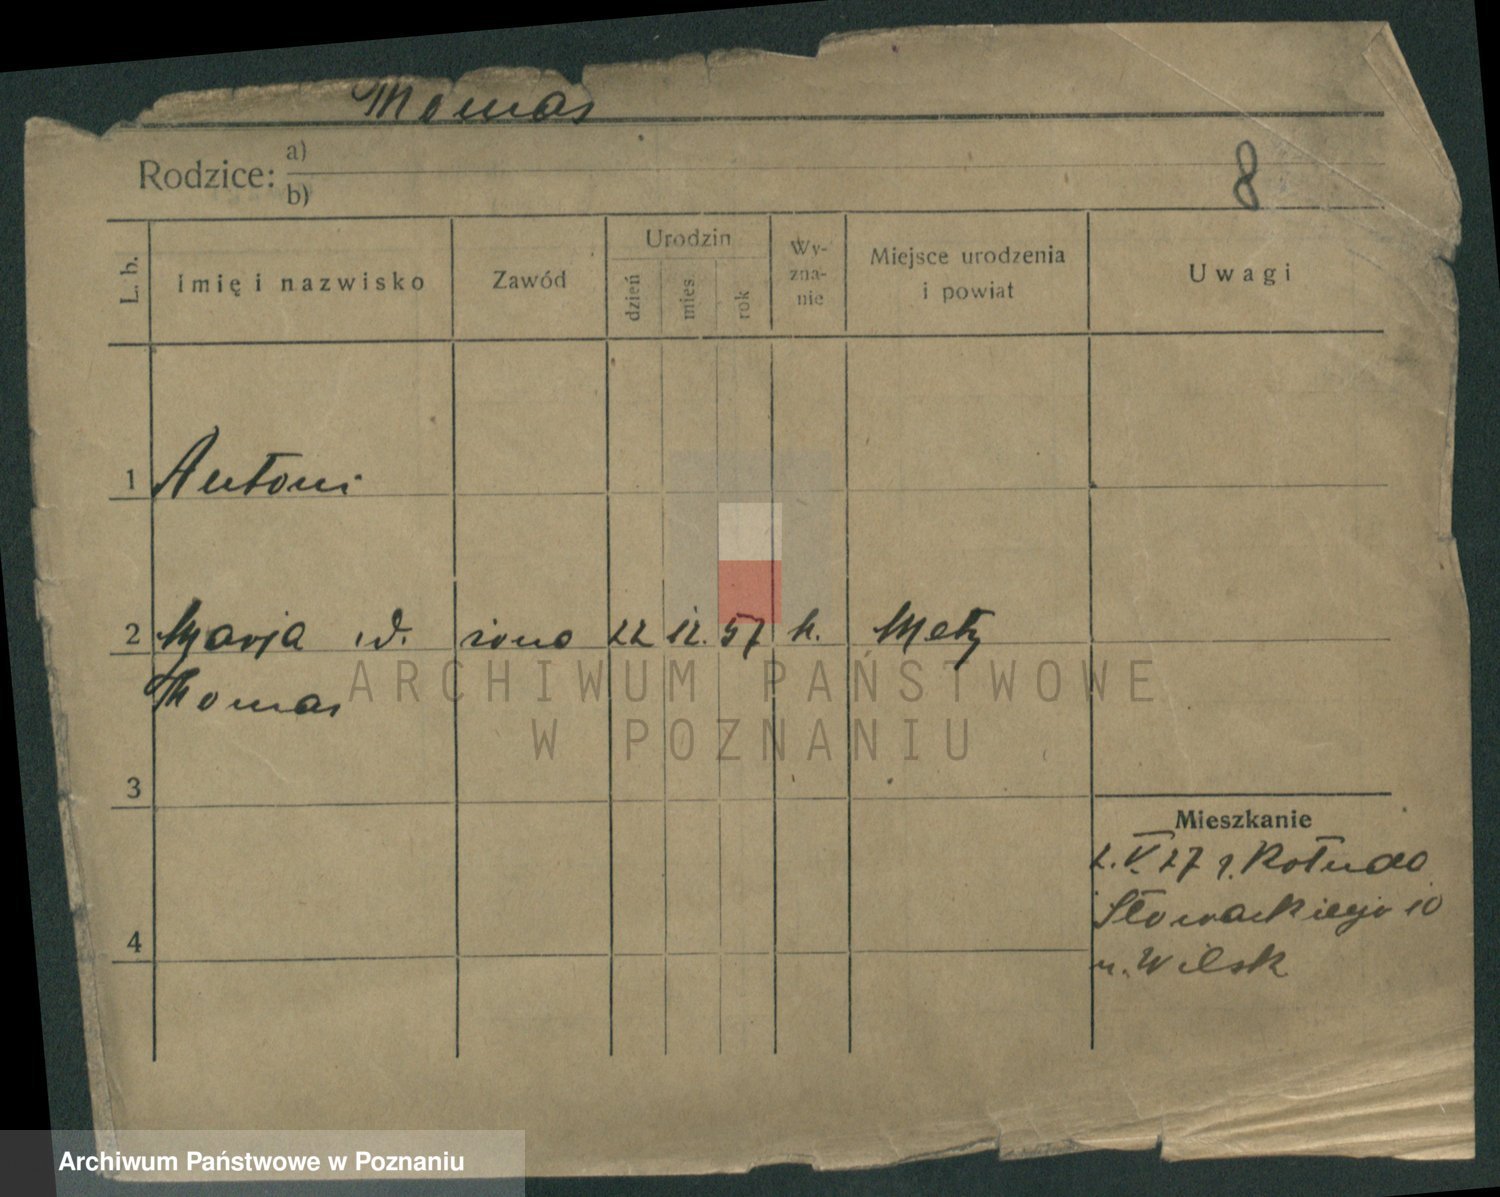 Thomas
8
Rodzice: a)
b)
L. b. Imię i nazwisko Zawód Urodzin dzień mies. rok Wy-zna-nie Miejsce urodzenia i powiat Uwagi
1 Antoni
2 Marja żona 22 12. 57 k. Metz
Thomas
3
Mieszkanie
2.V.27 r.
Słowackiego 10
4
ARCHIWUM PAŃSTWOWE
W POZNANIU
Archiwum Państwowe w Poznaniu